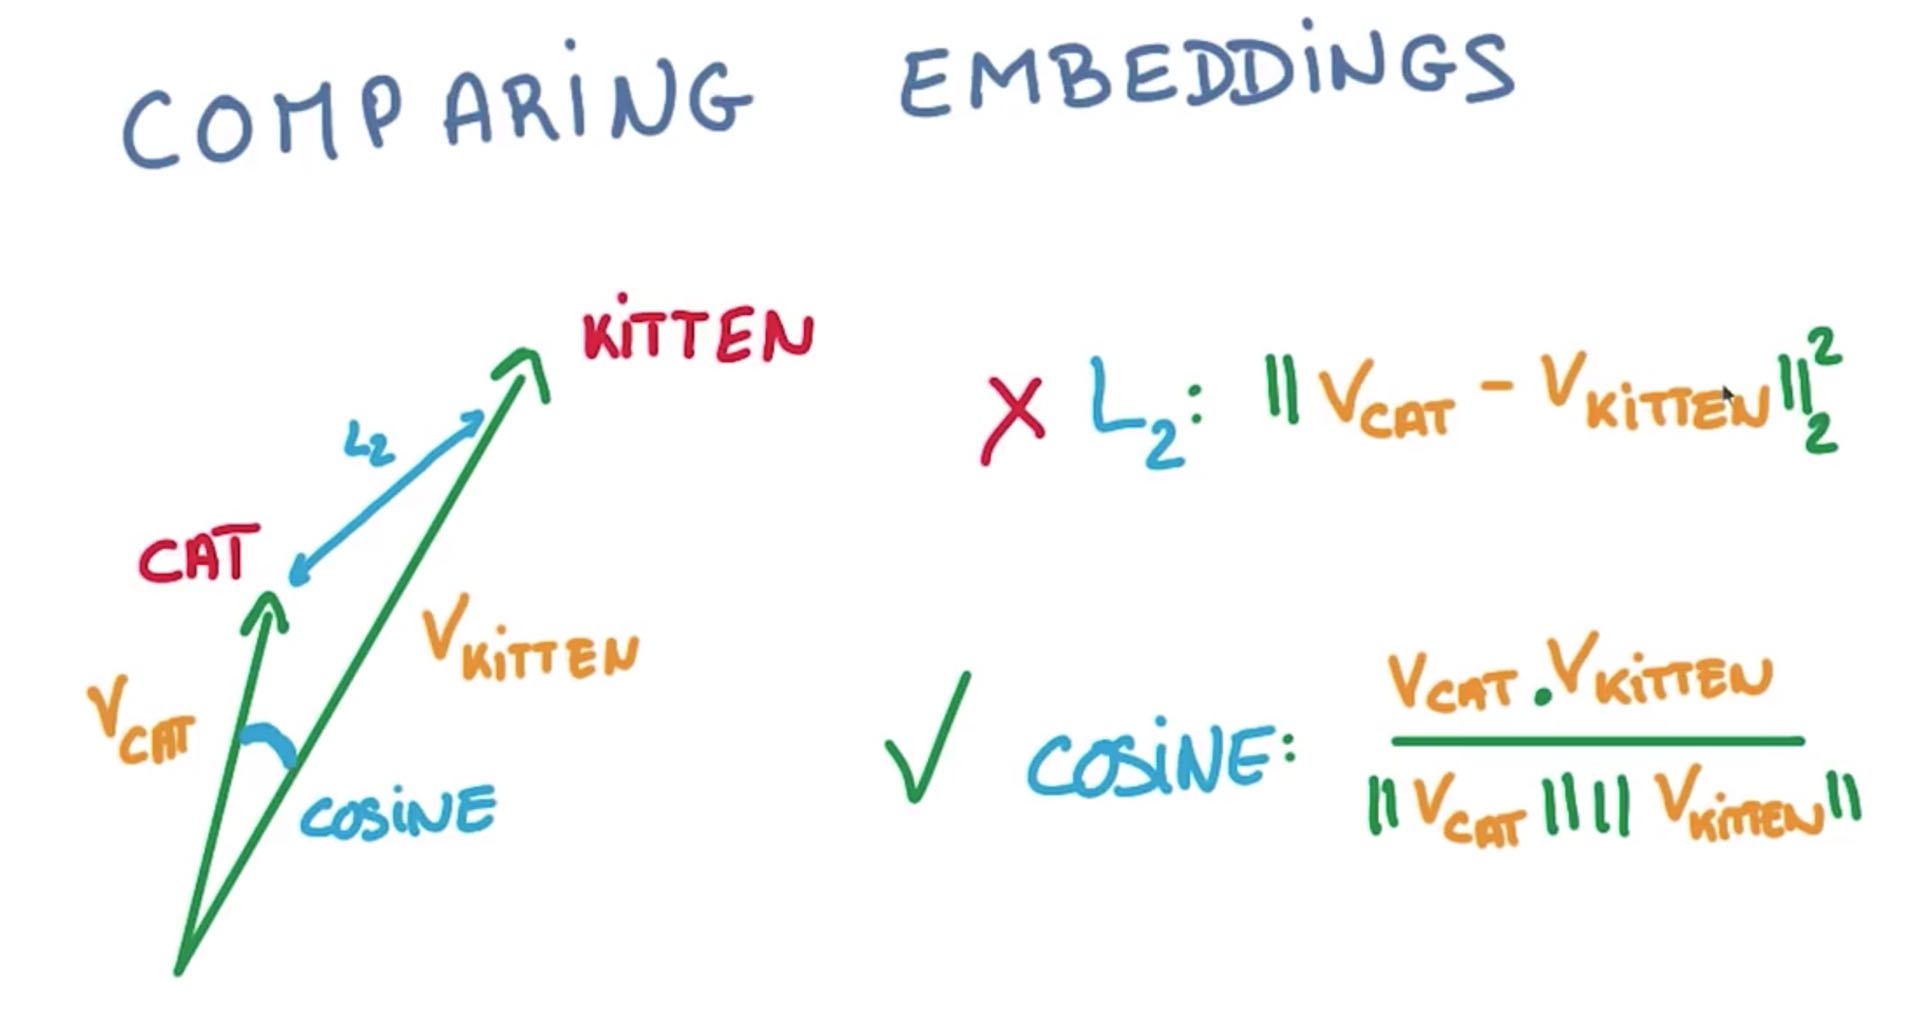 COMPARING EMBEDDINGS
KITTEN
L2
CAT
VKITTEN
VCAT
COSINE
X L2: ||VCAT - VKITTEN||²₂
✓ COSINE: VCAT . VKITTEN
||VCAT|| ||VKITTEN||